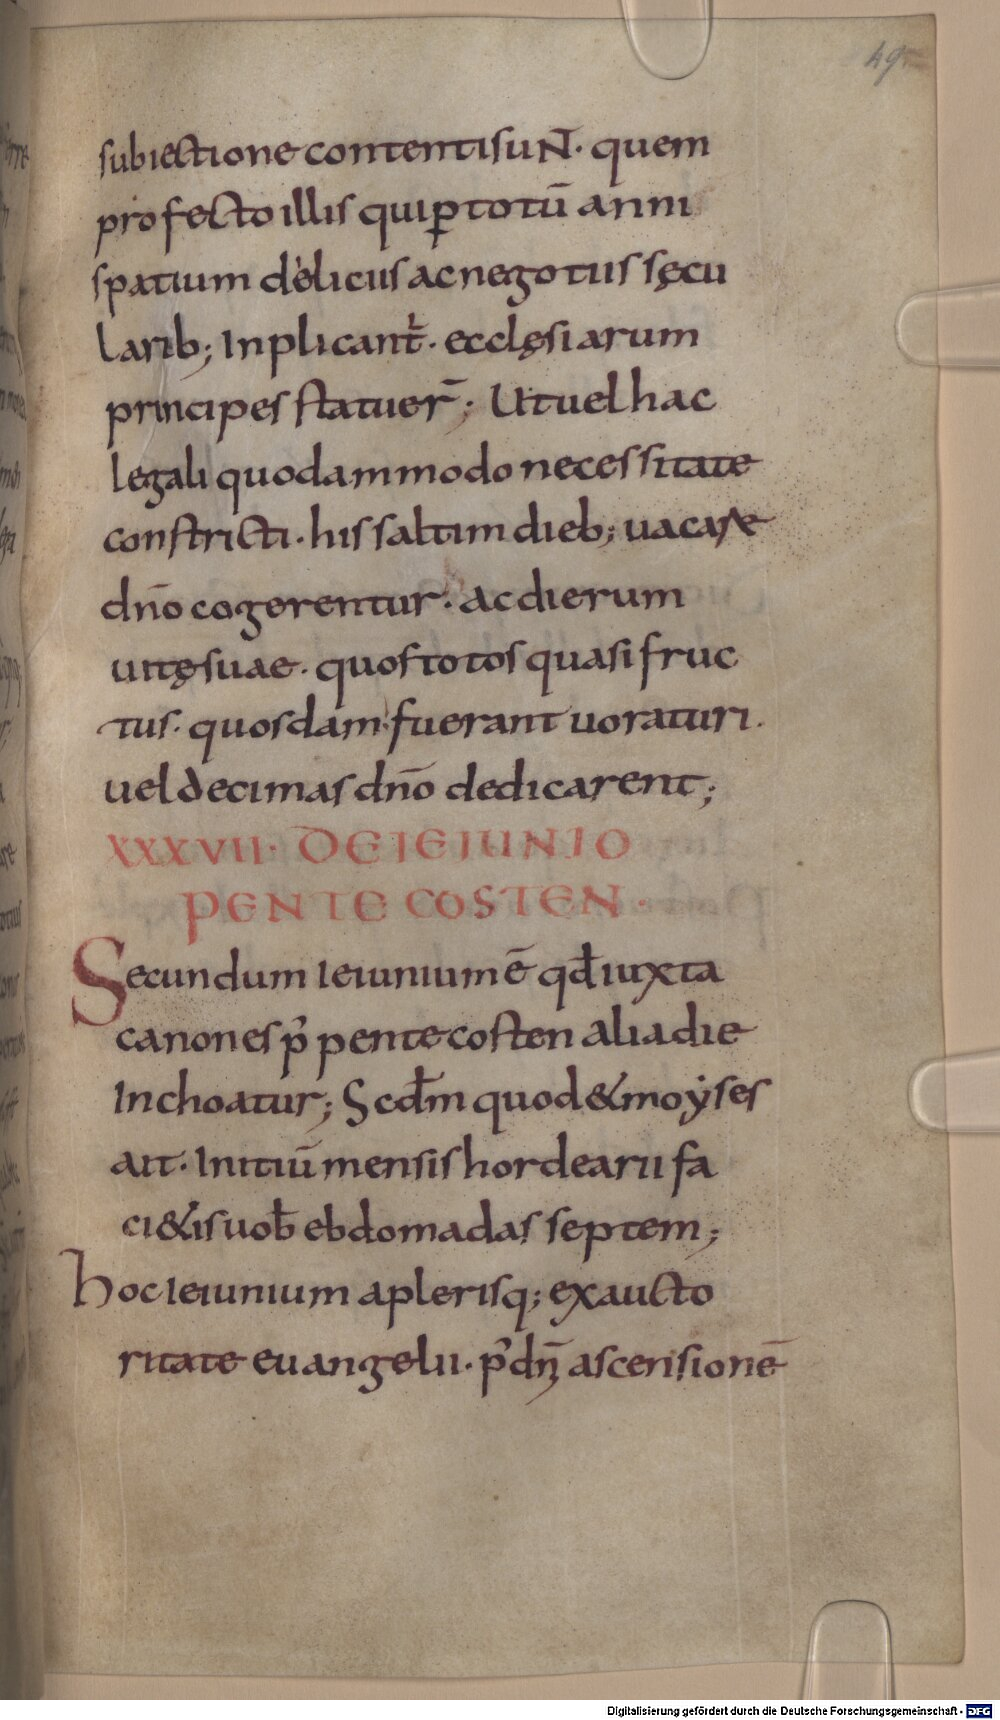 49
subiectione contenti suN̄. quem
profecto illis qui ꝑ totū anni
spatium deliciis ac negotiis sęcu
larib; Inplicant̄. ecclęsiarum
principes statuer̄; Ut uel hac
legali quodammodo necessitate
constricti. his saltim dieb; uacare
dn̄o cogerentur. ac dierum
uitę suae. quos totos quasi fruc
tus. quosdam fuerant uoraturi.
uel decimas dn̄o dedicarent;
XXXVII. DE IEIUNIO
PENTECOSTEN.
Secundum ieiunium ē qđ iuxta
canones p̓ pentecosten alia die
Inchoatur; Scđm quod & moẏses
ait. Initiū mensis hordearii fa
ci&is uob̄ ebdomadas septem;
hoc ieiunium a plerisq; ex aucto
ritate euangelii. p̓ dn̄i ascensionē
Digitalisierung gefördert durch die Deutsche Forschungsgemeinschaft - DFG